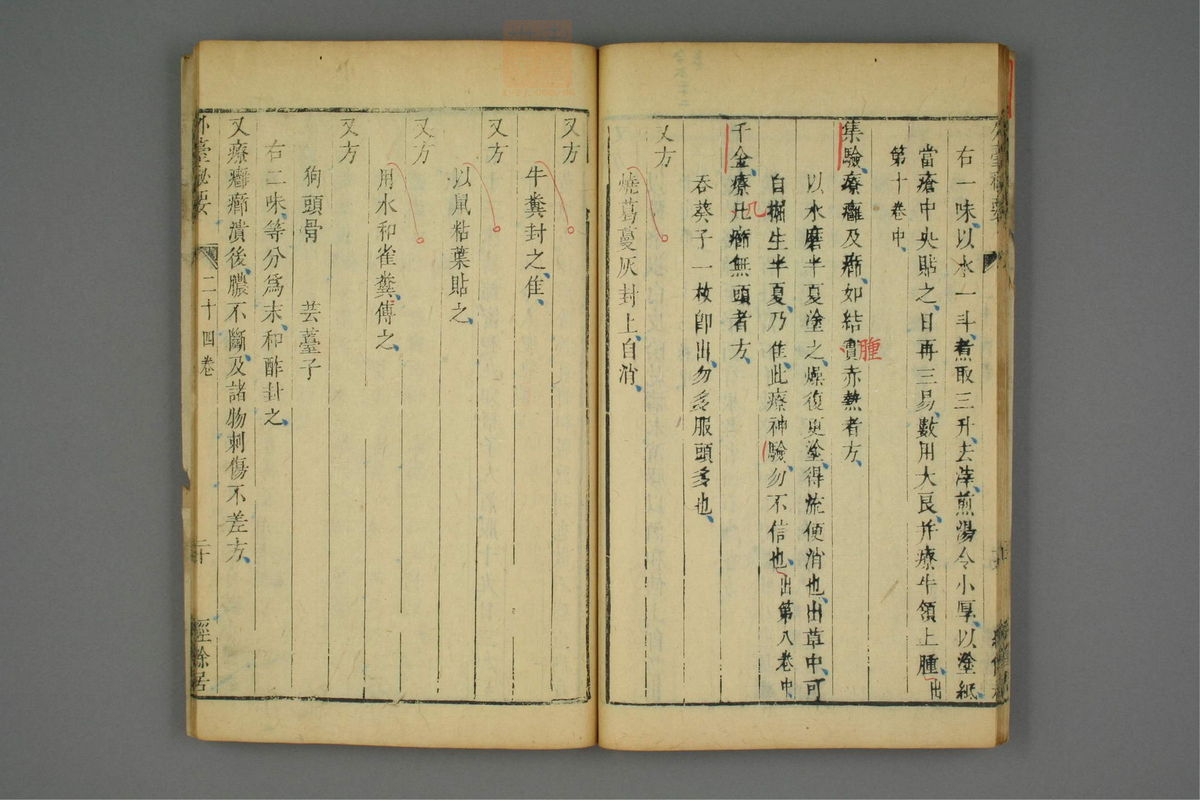 右一味以水一斗煮取三升去滓煎湯令小厚以塗紙
當瘡中央貼之日再三易數用大良并療牛領上腫出
第十卷中
集驗療癰及癤如結實赤熱者方
腫
以水磨半夏塗之燥復更塗得流便消也出草中可
自掘生半夏乃佳此療神驗勿不信也出第八卷中
千金療凡癤無頭者方
吞葵子一枚卽出勿多服頭多也
又方
燒葛蔓灰封上自消
又方
牛糞封之佳
又方
以鼠粘葉貼之
又方
用水和雀糞傅之
又方
狗頭骨 芸薹子
右二味等分爲末和酢封之
又療癰癤潰後膿不斷及諸物刺傷不差方
外臺秘要 二十四卷 二十 經餘居